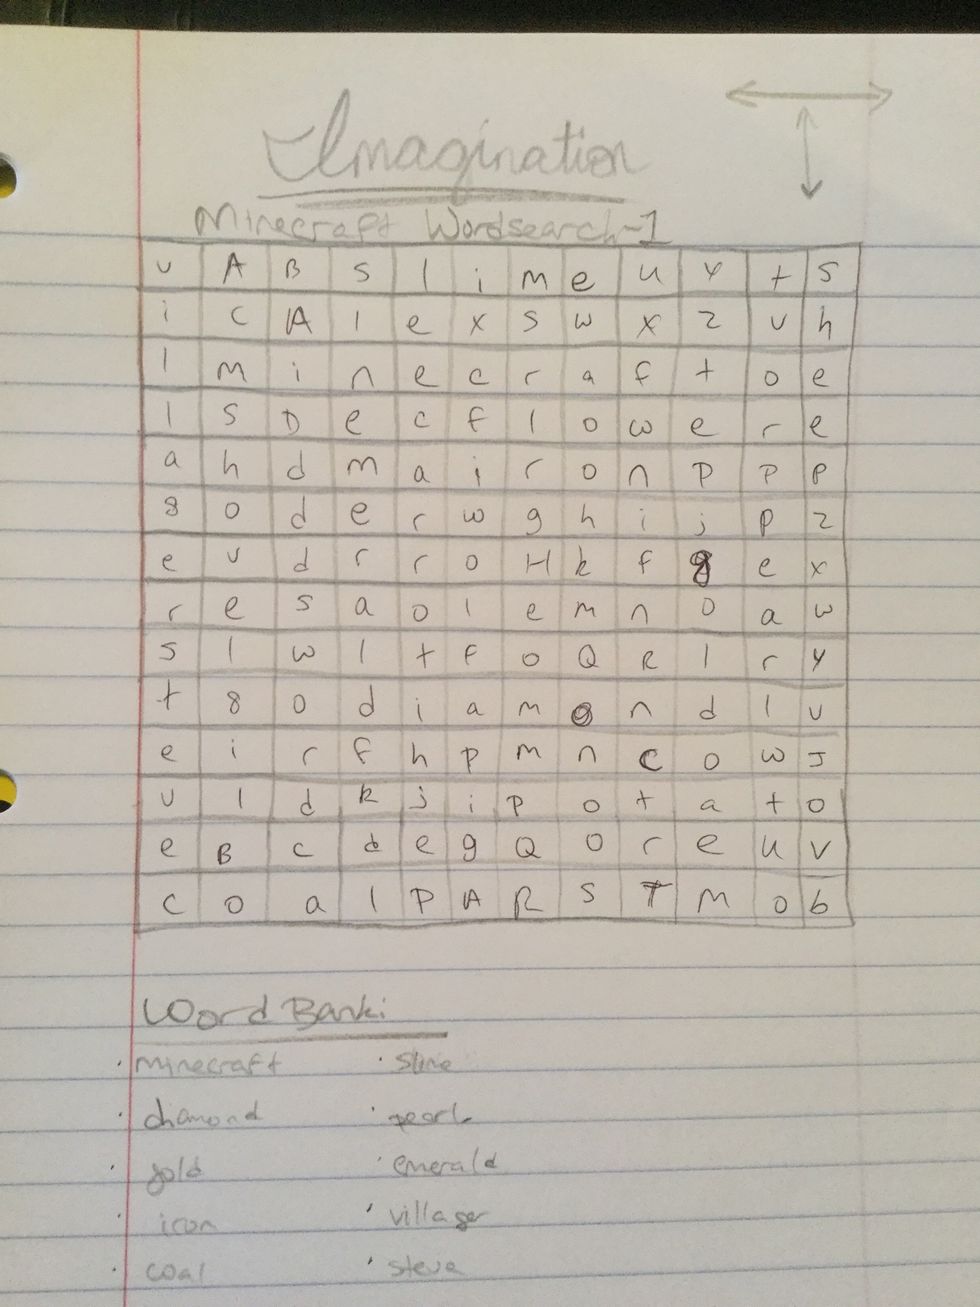 Imagination
Minecraft Wordsearch-1
v A B s l i m e u y t s
i c A l e x s w x z v h
l m i n e c r a f t o e
l s D e c f l o w e r e
a h d m a i r o n p p p
g o d e r w g h i j p z
e v d r r o H k f g e x
r e s a o l e m n o a w
s l w l t f o Q R l r y
t g o d i a m o n d l v
e i r f h p m n c o w J
v l d k j i p o t a t o
e B c d e g Q o r e u v
c o a l P A R S T M o b
Word Bank:
· minecraft · slime
· diamond · pearl
· gold · emerald
· iron · villager
· coal · steve